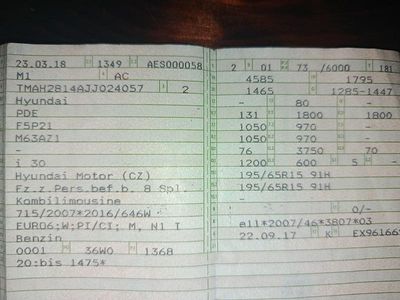 23.03.18 1349 AES000058
M1 AC
TMAH2814AJJ024057 2
Hyundai
PDE
F5P21
M63AZ1
-
i 30
Hyundai Motor (CZ)
Fz.z.Pers.bef.b. 8 Spl.
Kombilimousine
715/2007*2016/646W
EURO6;W;PI/CI; M, N1 I
Benzin
0001 36W0 1368
20:bis 1475*
2 01 73 /6000 181
4585 1795
1465 1285-1447
- 80 -
131 1800 1800
1050 970 -
1050 970 -
76 3750 70
1200 600 5 -
195/65R15 91H
195/65R15 91H
-
- 0/-
e11*2007/46*3807*03
22.09.17 K EX961665